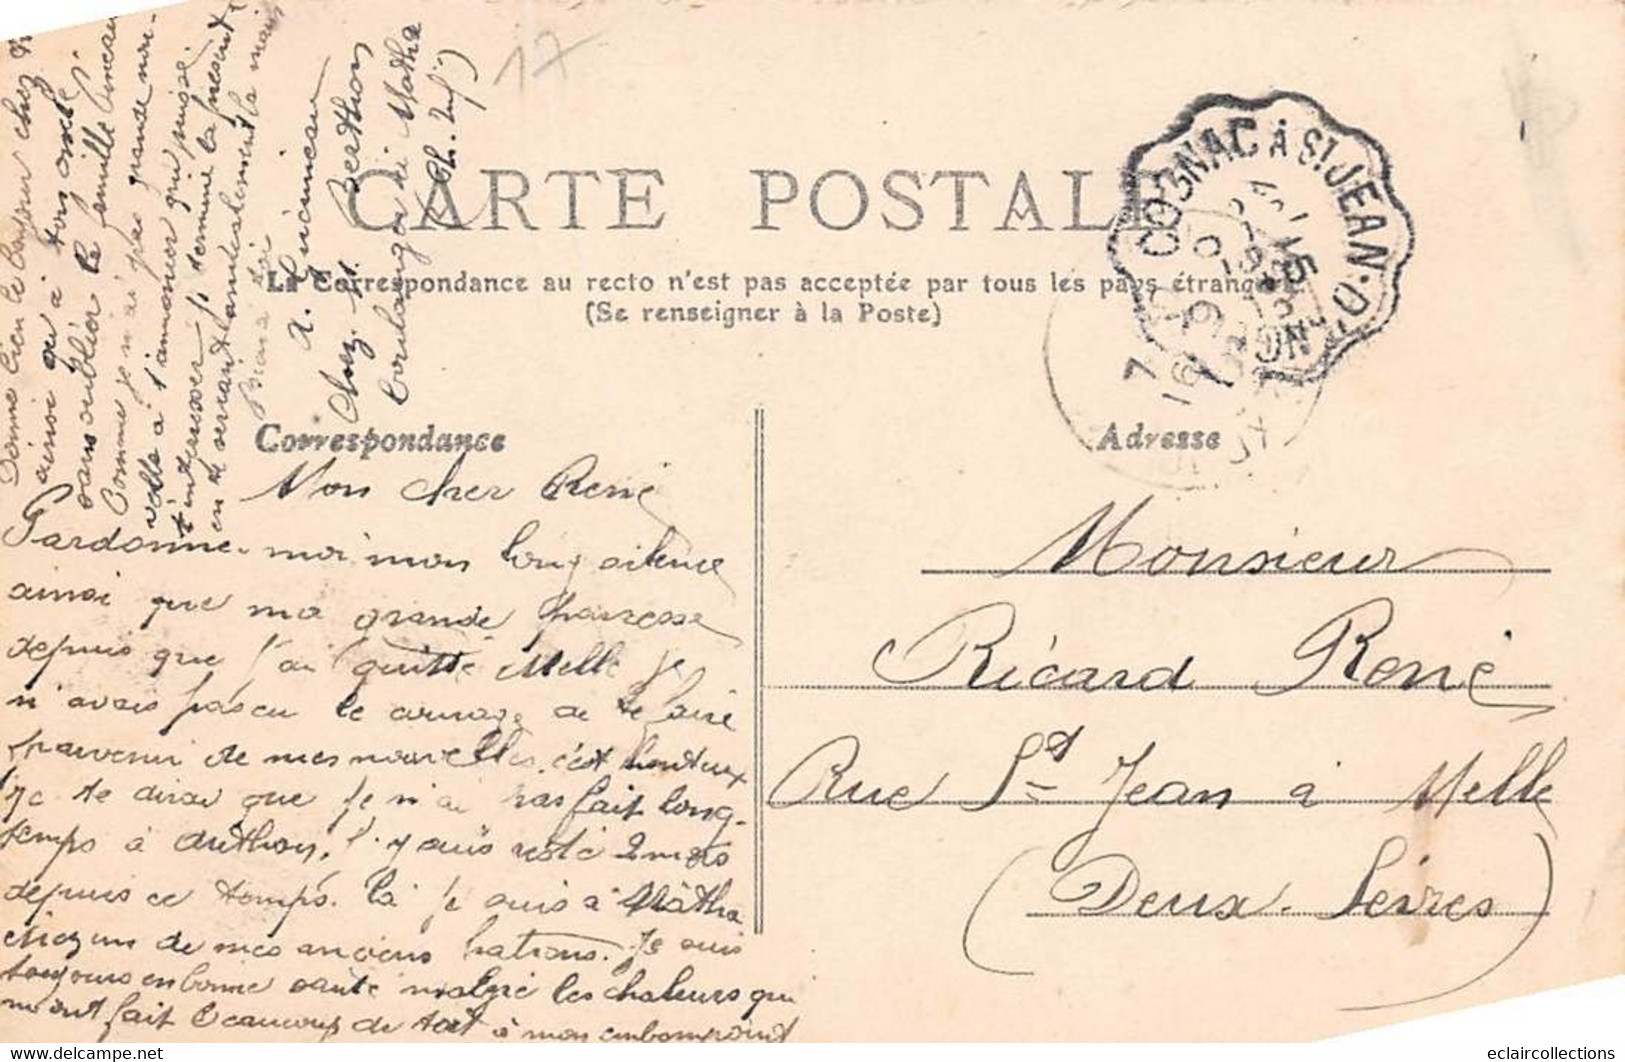 17
CARTE POSTALE
La Correspondance au recto n'est pas acceptée par tous les pays étrangers
(Se renseigner à la Poste)
COGNAC À ST JEAN-D
Correspondance
Adresse
Mon cher René
Pardonne-moi mon long silence
ainsi que ma grande paresse
depuis que j'ai quitté Melle je
n'avais pas eu le courage de te faire
parvenir de mes nouvelles, c'est honteux
je te dirai que je n'ai pas fait long-
temps à Anthon, j'y suis resté 2 mois
depuis ce temps là je suis à Matha
chez un de mes anciens patrons. Je suis
toujours en bonne santé malgré les chaleurs qui
m'ont fait beaucoup de tort à mon embompoint
Donne bien le bonjour chez
ainsi qu'à ton oncle
sans oublier la famille
Comme je n'ai pas grande nou-
velle à t'annoncer qui puisse
t'intéresser je termine la présente
en te serrant amicalement la main
Bien à toi
A. Guicineau
Chez M. Berthon
boulanger à Matha
(Ch. Inf.)
Monsieur
Ricard René
Rue St Jean à Melle
(Deux-Sèvres)
eclaircollections